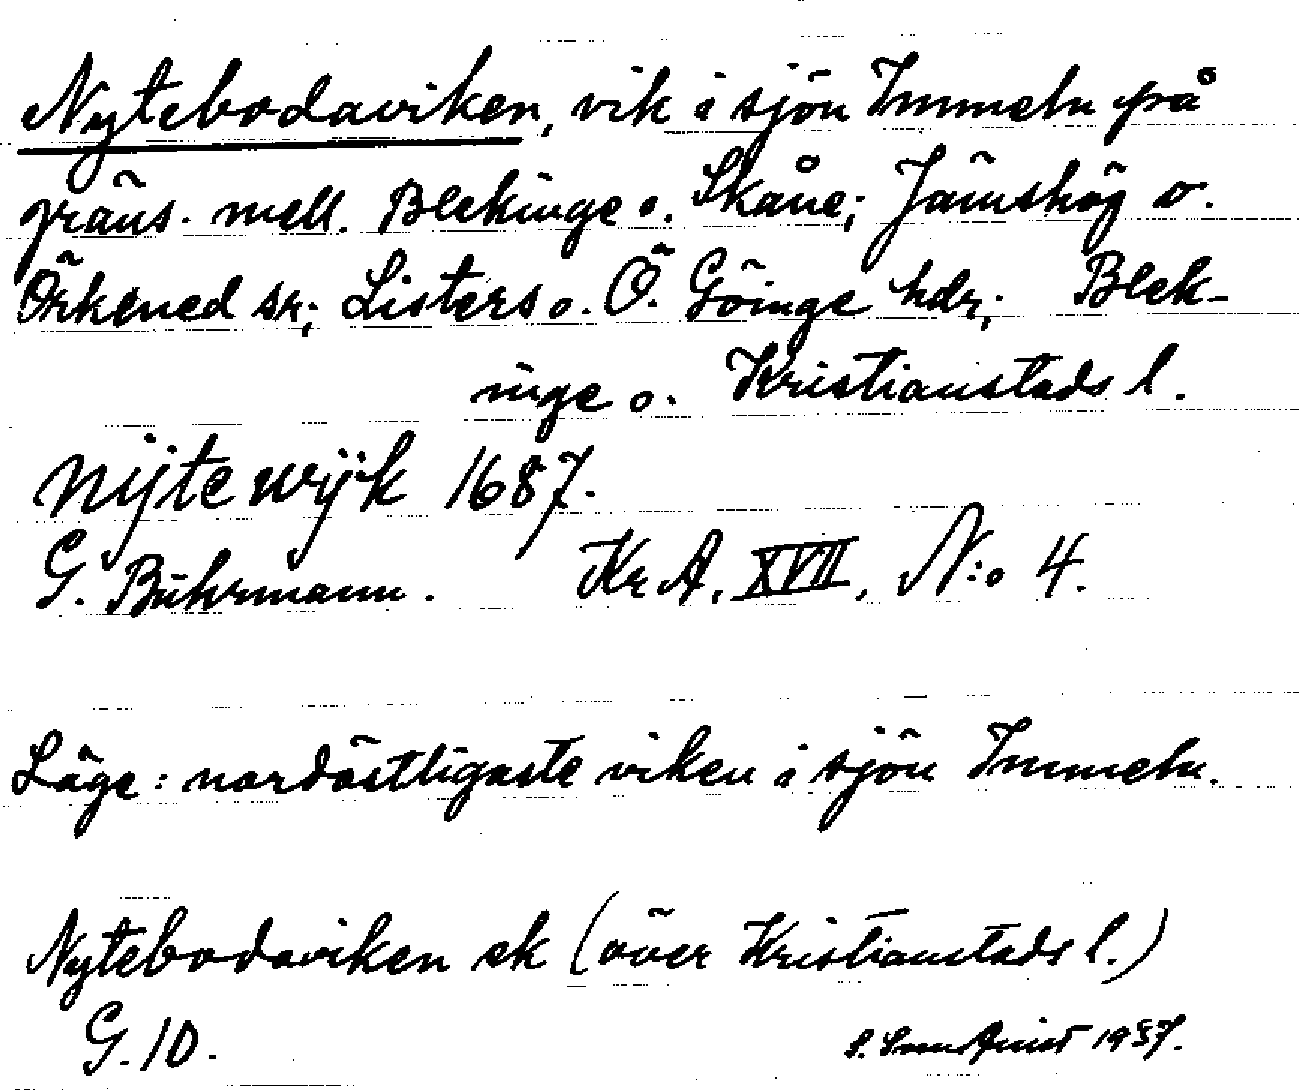 Nytebodaviken, vik i sjön Immeln på
gräns. mell. Blekinge o. Skåne; Jämshög o.
Örkened sr; Listers o. Ö. Göinge hdr; Blek-
inge o. Kristianstads l.
Nijte wijk 1687.
G. Buhrmann. Kr A. XVII, N:o 4.
Läge: nordöstligaste viken i sjön Immeln.
Nytebodaviken ek (över Kristianstads l.)
G. 10.
1937.